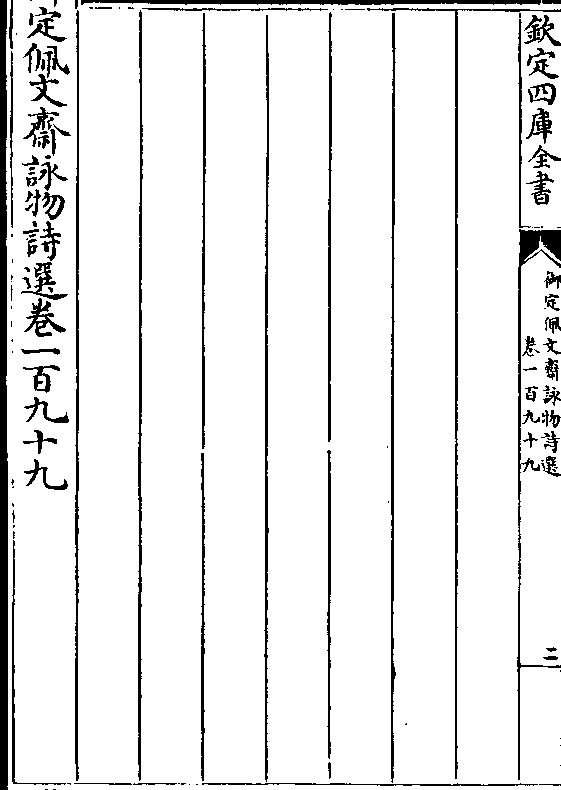 欽定四庫全書
御定佩文齋詠物詩選
卷一百九十九
二
定佩文齋詠物詩選卷一百九十九